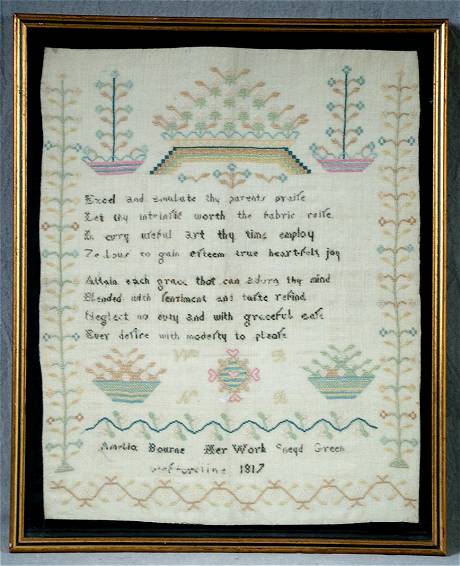 Excel and emulate thy parents praise
Let thy intrinsic worth the fabric raise
In evry useful art thy time employ
Zealous to gain esteem true heartfelt joy
Attain each grace that can adorn thy mind
Blended with sentiment and taste refind
Neglect no duty and with graceful ease
Ever desire with modesty to please
B
N B
Amelia Bourne Her Work Sneyd Green
1817